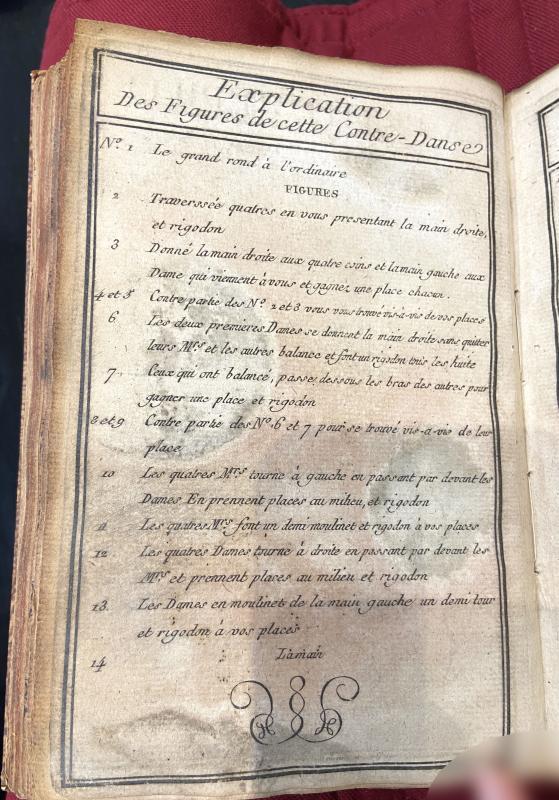 Explication
Des Figures de cette Contre-Danse
No. 1 Le grand rond à l'ordinaire
FIGURES
2 Traverssée quatres en vous presentant la main droite,
et rigodon
3 Donné la main droite aux quatre coins et la main gauche aux
Dame qui viennent à vous et gagnez une place chacun.
4 et 5 Contre partie des No. 2 et 3 vous vous trouvé vis-à-vis de vos places
6 Les deux premieres Dames se donnent la main droite sans quitter
leurs Mrs et les autres balance et font un rigodon tous les huite
7 Ceux qui ont balancé, passe dessous les bras des autres pour
gagner une place et rigodon
8 et 9 Contre partie des No. 6 et 7 pour se trouvé vis-a-vis de leur
place
10 Les quatres Mrs tourne à gauche en passant par devant les
Dames En prennent places au milieu, et rigodon
11 Les quatres Mrs font un demi moulinet et rigodon à vos places
12 Les quatres Dames tourne à droite en passant par devant les
Mrs et prennent places au milieu et rigodon
13 Les Dames en moulinets de la main gauche un demi tour
et rigodon à vos places
14 La main